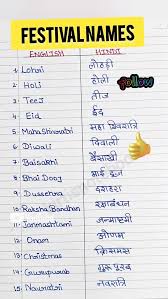 FESTIVAL NAMES
ENGLISH HINDI
1. Lohri लोहड़ी
2. Holi होली
follow
3. Teej तीज
4. Eid ईद
5. MahaShivratri महा शिवरात्रि
6. Diwali दिवाली
7. Baisakhi बैसाखी
8. Bhai Dooj भाई दूज
9. Dussehra दशहरा
10. Raksha Bandhan रक्षाबंधन
11. Janmashtami जन्माष्टमी
12. Onam ओणम
13. Christmas क्रिसमस
14. Gurupurab गुरु पूरब
15. Navratri नवरात्रि